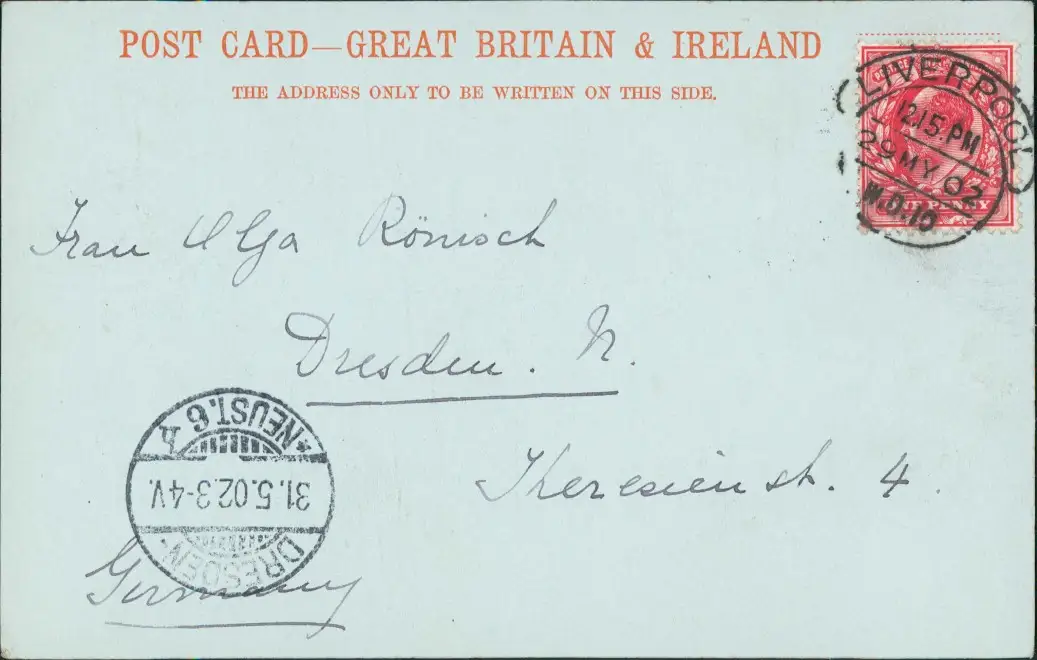 POST CARD—GREAT BRITAIN & IRELAND
THE ADDRESS ONLY TO BE WRITTEN ON THIS SIDE.
LIVERPOOL
12.15.PM
29 MY 02
W.D.10
PENNY
Frau Olga Rönisch
Dresden. N.
Theresienst. 4.
*NEUST. 6
31.5.02.3-4V.
DRESDEN-
Germany